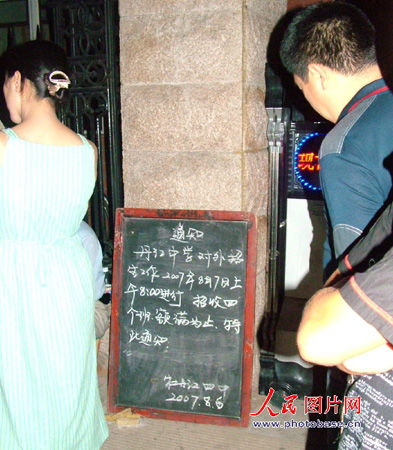 通知
丹江中学对外招
生工作2007年8月7日上
午8:00进行 招收四
个班,额满为止,特
此通知.
牡丹江四中
2007.8.6
现
人民图片网
www.photobase.cn